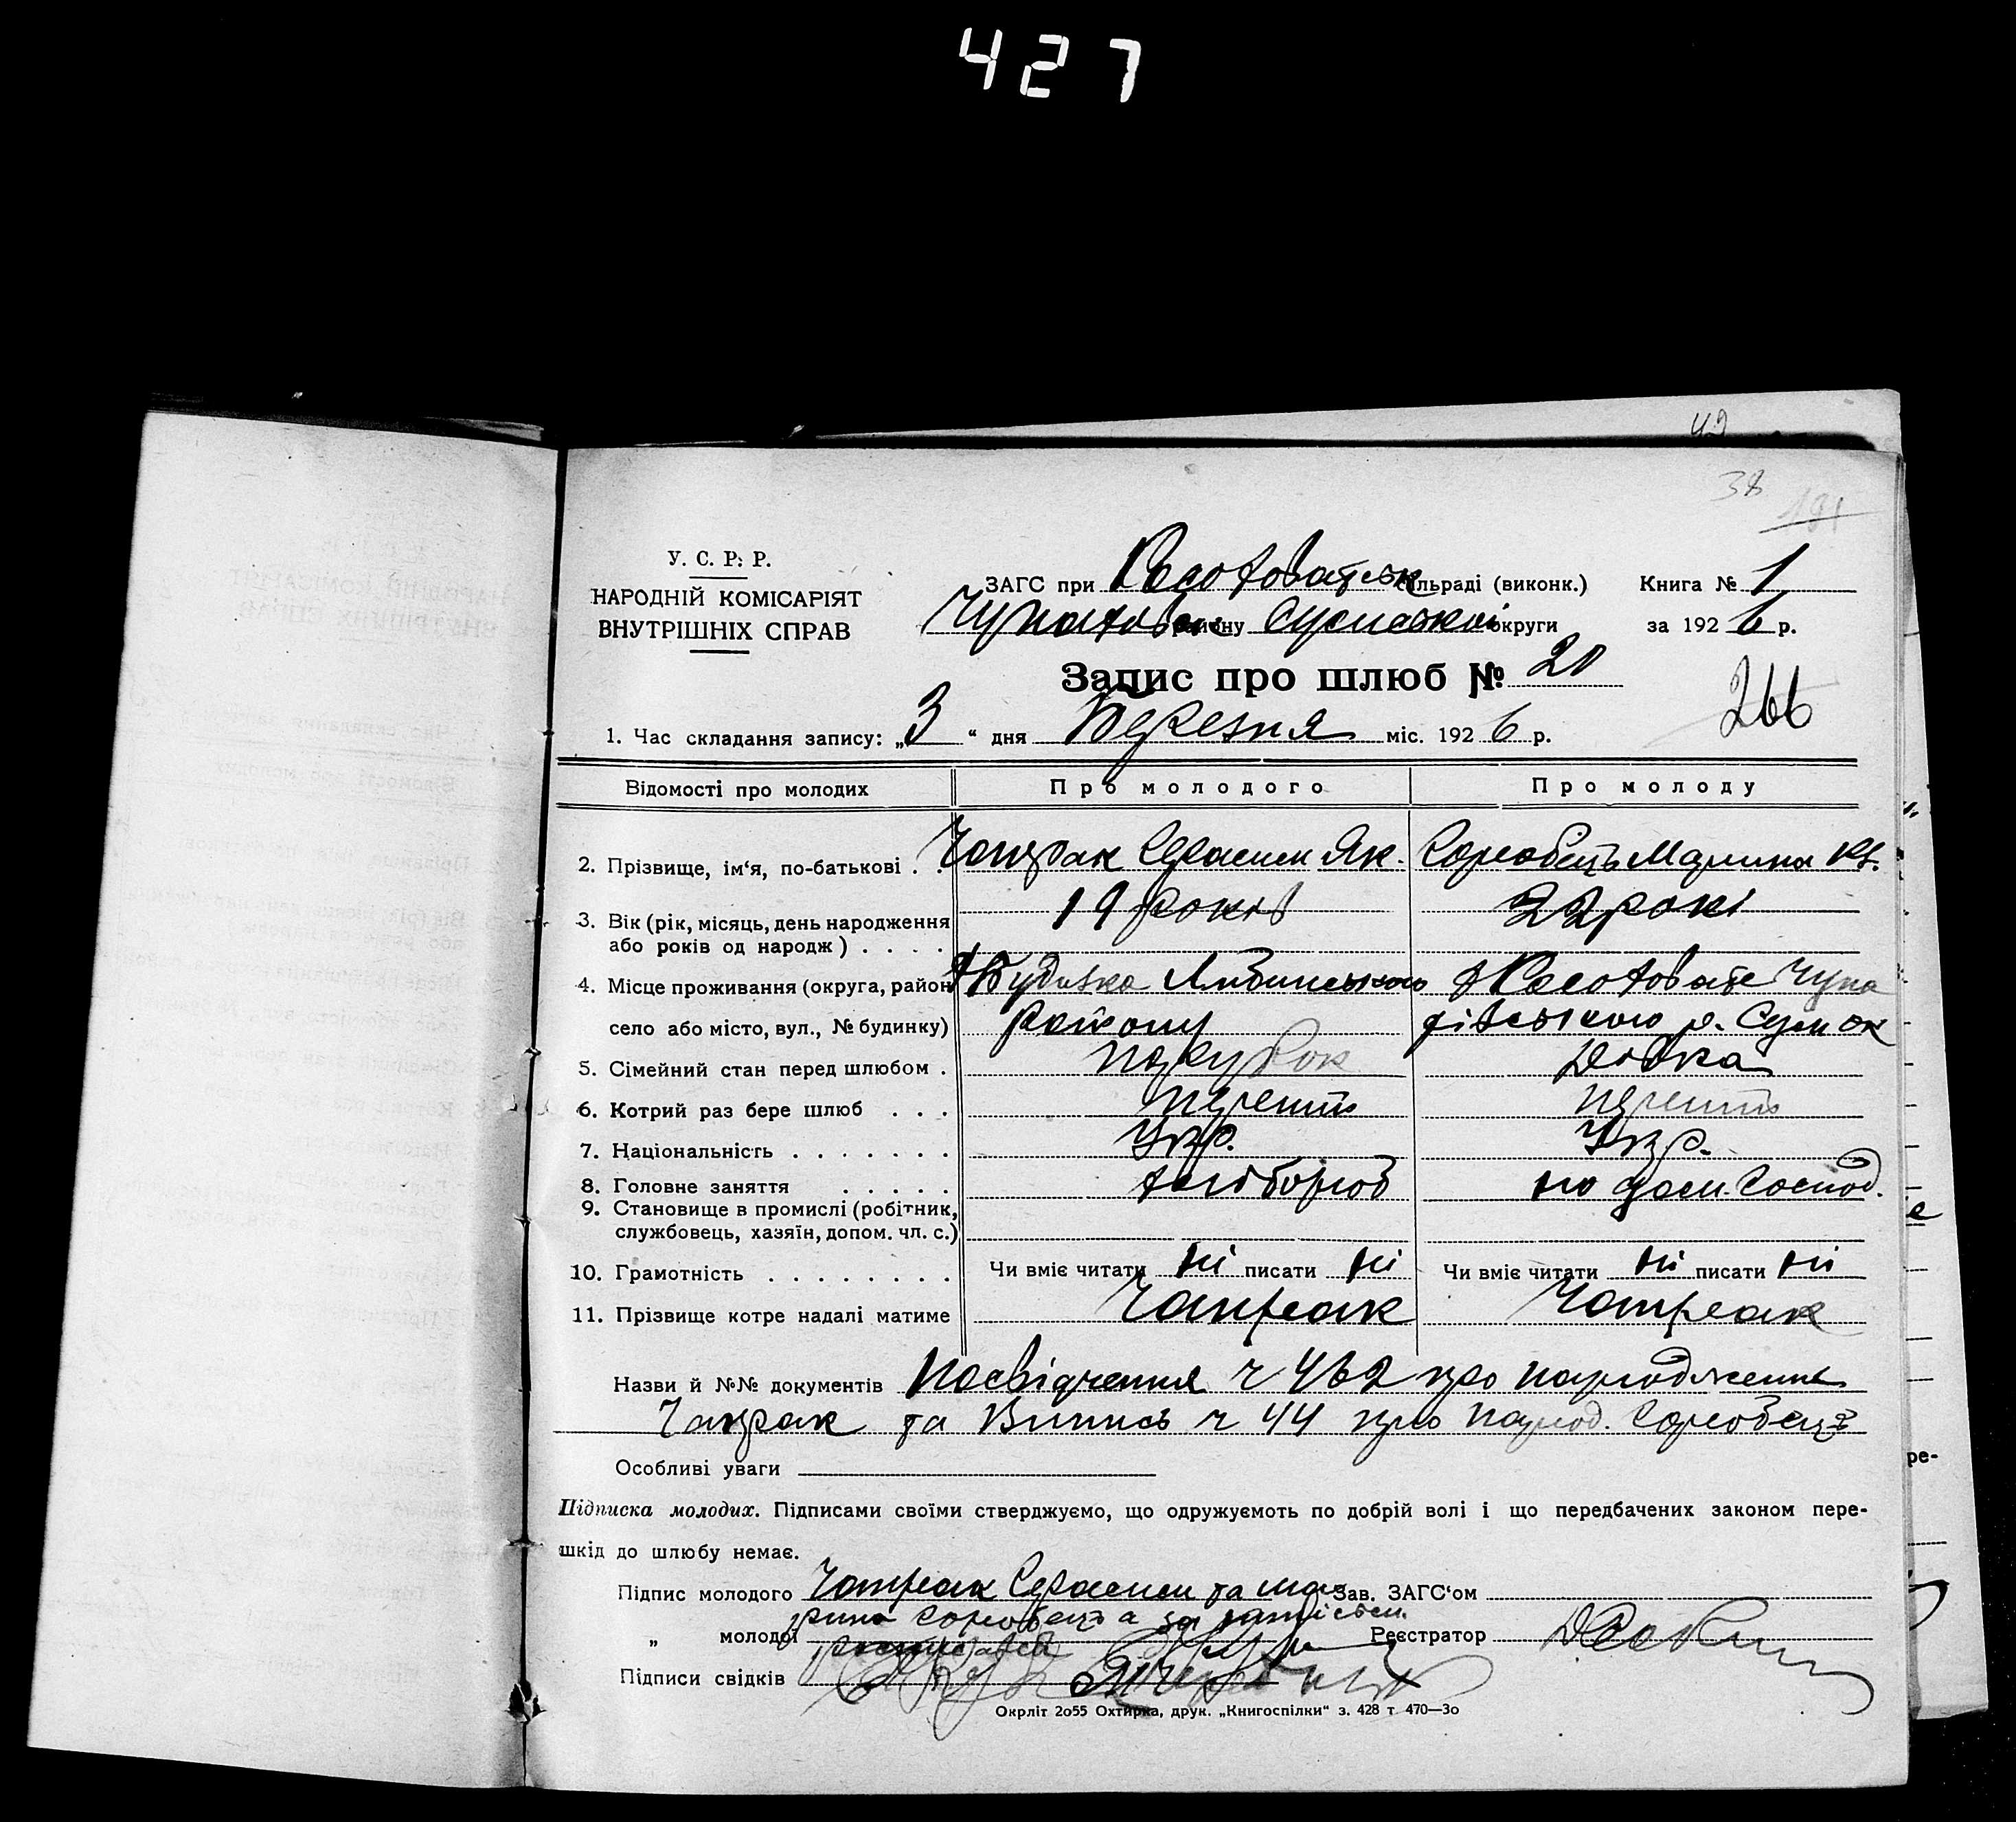 427
49
38
191
У. С. Р. Р.
НАРОДНІЙ КОМІСАРІЯТ
ВНУТРІШНІХ СПРАВ
ЗАГС при сільраді (виконк.) Книга № 1
району Сумської округи за 1926 р.
Запис про шлюб № 20
266
1. Час складання запису: „3“ дня Березня міс. 1926 р.
Відомості про молодих Про молодого Про молоду
2. Прізвище, ім‘я, по-батькові . . Чапрак Герасим Як. Горобець Марина
3. Вік (рік, місяць, день народження 19 років 22 роки
або років од народж ) . . . .
4. Місце проживання (округа, район Будилка Чупа
село або місто, вул., № будинку) району хівського р. Сум ок
5. Сімейний стан перед шлюбом . парубок Дівка
6. Котрий раз бере шлюб . . . перший перший
7. Національність . . . . . . . Укр. Укр.
8. Головне заняття . . . . . хлібороб по дом. господ.
9. Становище в промислі (робітник,
службовець, хазяїн, допом. чл. с.)
10. Грамотність . . . . . . . . Чи вміє читати ні писати ні Чи вміє читати ні писати ні
11. Прізвище котре надалі матиме Чапрак Чапрак
Назви й №№ документів Посвідчення ч 462 про народження
Чапрак та Випись ч 44 про народ. Горобець
Особливі уваги
Підписка молодих. Підписами своїми стверджуємо, що одружуємоть по добрій волі і що передбачених законом пере-
шкід до шлюбу немає.
Підпис молодого Чапрак Герасим та Ма Зав. ЗАГС‘ом
рина Горобець а за
„ молодої Реєстратор
Підписи свідків
Окрліт 2о55 Охтирка, друк. „Книгоспілки“ з. 428 т 470—3о
ре-